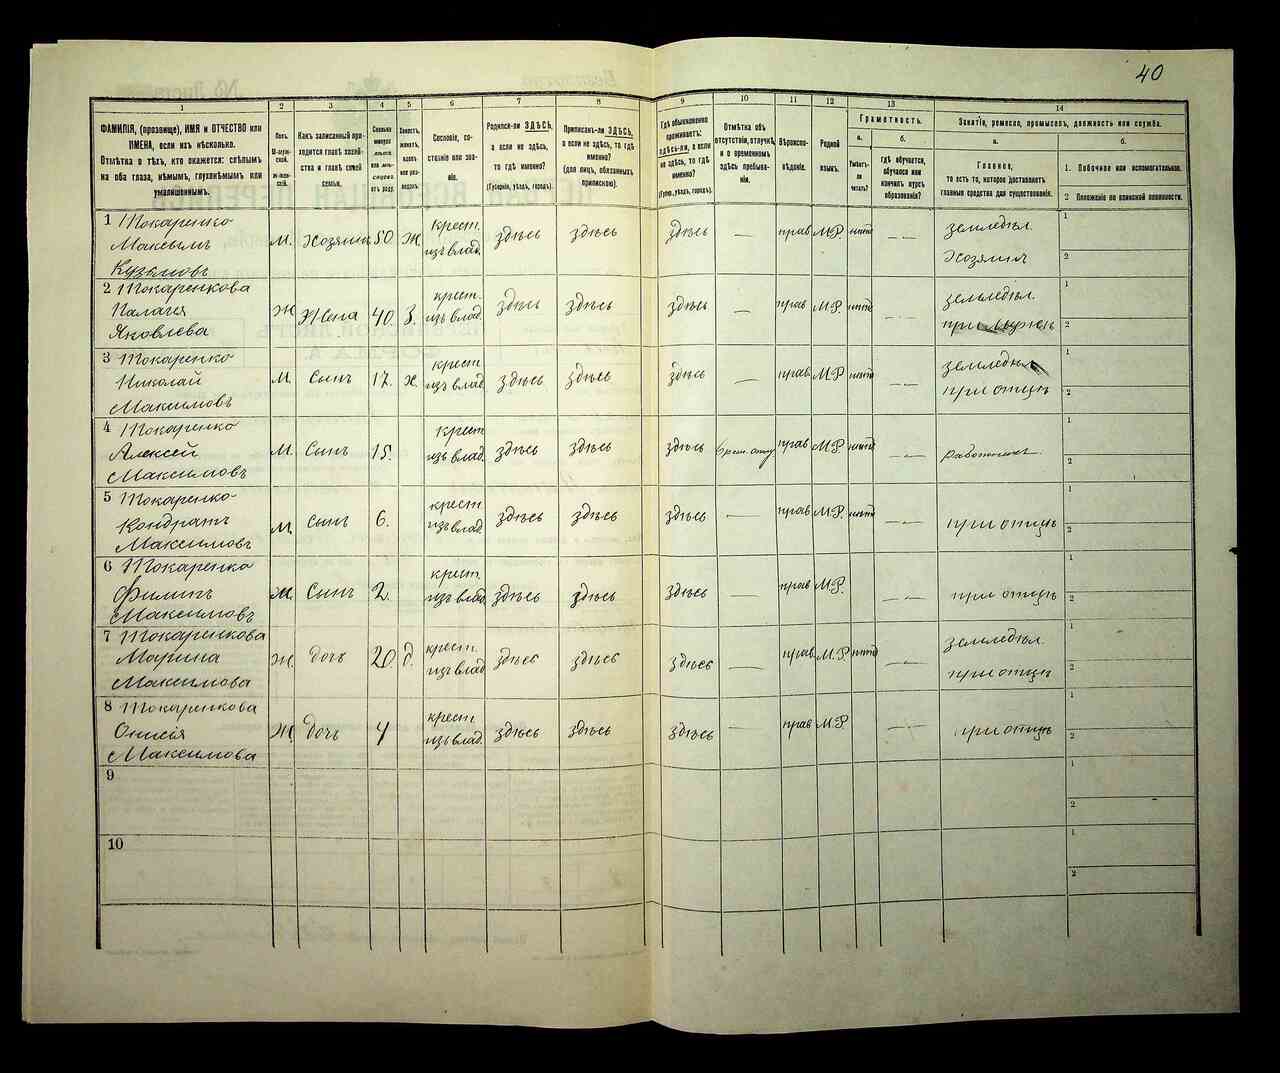 40
1
2
3
4
5
6
7
8
9
10
11
12
13
14
ФАМИЛІЯ, (прозвище), ИМЯ и ОТЧЕСТВО или
ИМЕНА, если ихъ нѣсколько.
Отмѣтка о тѣхъ, кто окажется: слѣпымъ
на оба глаза, нѣмымъ, глухонѣмымъ или
умалишеннымъ.
Полъ.
М-муж-
ской.
Ж-жен-
скій.
Какъ записанный при-
ходится главѣ хозяй-
ства и главѣ своей
семьи.
Сословіе, со-
стояніе или зва-
ніе.
Родился-ли ЗДѢСЬ,
а если не здѣсь,
то гдѣ именно?
(Губернія, уѣздъ, городъ).
Приписанъ-ли ЗДѢСЬ,
а если не здѣсь, то гдѣ
именно?
(для лицъ, обязанныхъ
припискою).
Гдѣ обыкновенно
проживаетъ:
здѣсь-ли, а если
не здѣсь, то гдѣ
именно?
(Губ., уѣздъ, городъ).
Отмѣтка объ
отсутствіи, отлучкѣ,
и о временномъ
здѣсь пребыва-
ніи.
Вѣроиспо-
вѣданіе.
Родной
языкъ.
Грамотность.
а.
Умѣетъ-
ли
читать?
б.
гдѣ обучается,
обучался или
кончилъ курсъ
образованія?
Занятіе, ремесло, промыселъ, должность или служба.
а.
Главное,
то есть то, которое доставляетъ
главныя средства для существованія.
б.
1. Побочное или вспомогательное.
2 Положеніе по воинской повинности.
1 Токаренко
Максымъ
Кузьмовъ
М. Хозяинъ 50. Ж. крест. изъ влад. здѣсь здѣсь здѣсь — прав М.Р. нѣтъ — — земледѣл. Хозяинъ 1 2
2 Токаренкова
Палагія
Яковлева
Ж Жена 40. З. крест. изъ влад. здѣсь здѣсь здѣсь — прав М.Р. нѣтъ — — земледѣл. при мужѣ 1 2
3 Токаренко
Николай
Максимовъ
М. Сынъ 17. х. крест. изъ влад здѣсь здѣсь здѣсь — прав М.Р нѣтъ — — земледѣл при отцѣ 1 2
4 Токаренко
Алексей
Максимовъ
М. Сынъ 15. крест изъ влад. здѣсь здѣсь здѣсь прав М.Р нѣтъ — — 1 2
5 Токаренко
Кондратъ
Максимовъ
М. Сынъ 6. крест изъ влад здѣсь здѣсь здѣсь — прав М.Р. нѣтъ — — при отцѣ 1 2
6 Токаренко
Филипъ
Максимовъ
М. Сынъ 2. крест. изъ влад. здѣсь здѣсь здѣсь — прав М.Р. — — при отцѣ 1 2
7 Токаренкова
Марина
Максимова
Ж. дочь 20 д. крест. изъ влад здѣсь здѣсь здѣсь — прав М.Р нѣтъ — — земледѣл при отцѣ 1 2
8 Токаренкова
Максимова
Ж. дочь 4 крест изъ влад. здѣсь здѣсь здѣсь — прав М.Р. — — при отцѣ 1 2
9 1 2
10 1 2